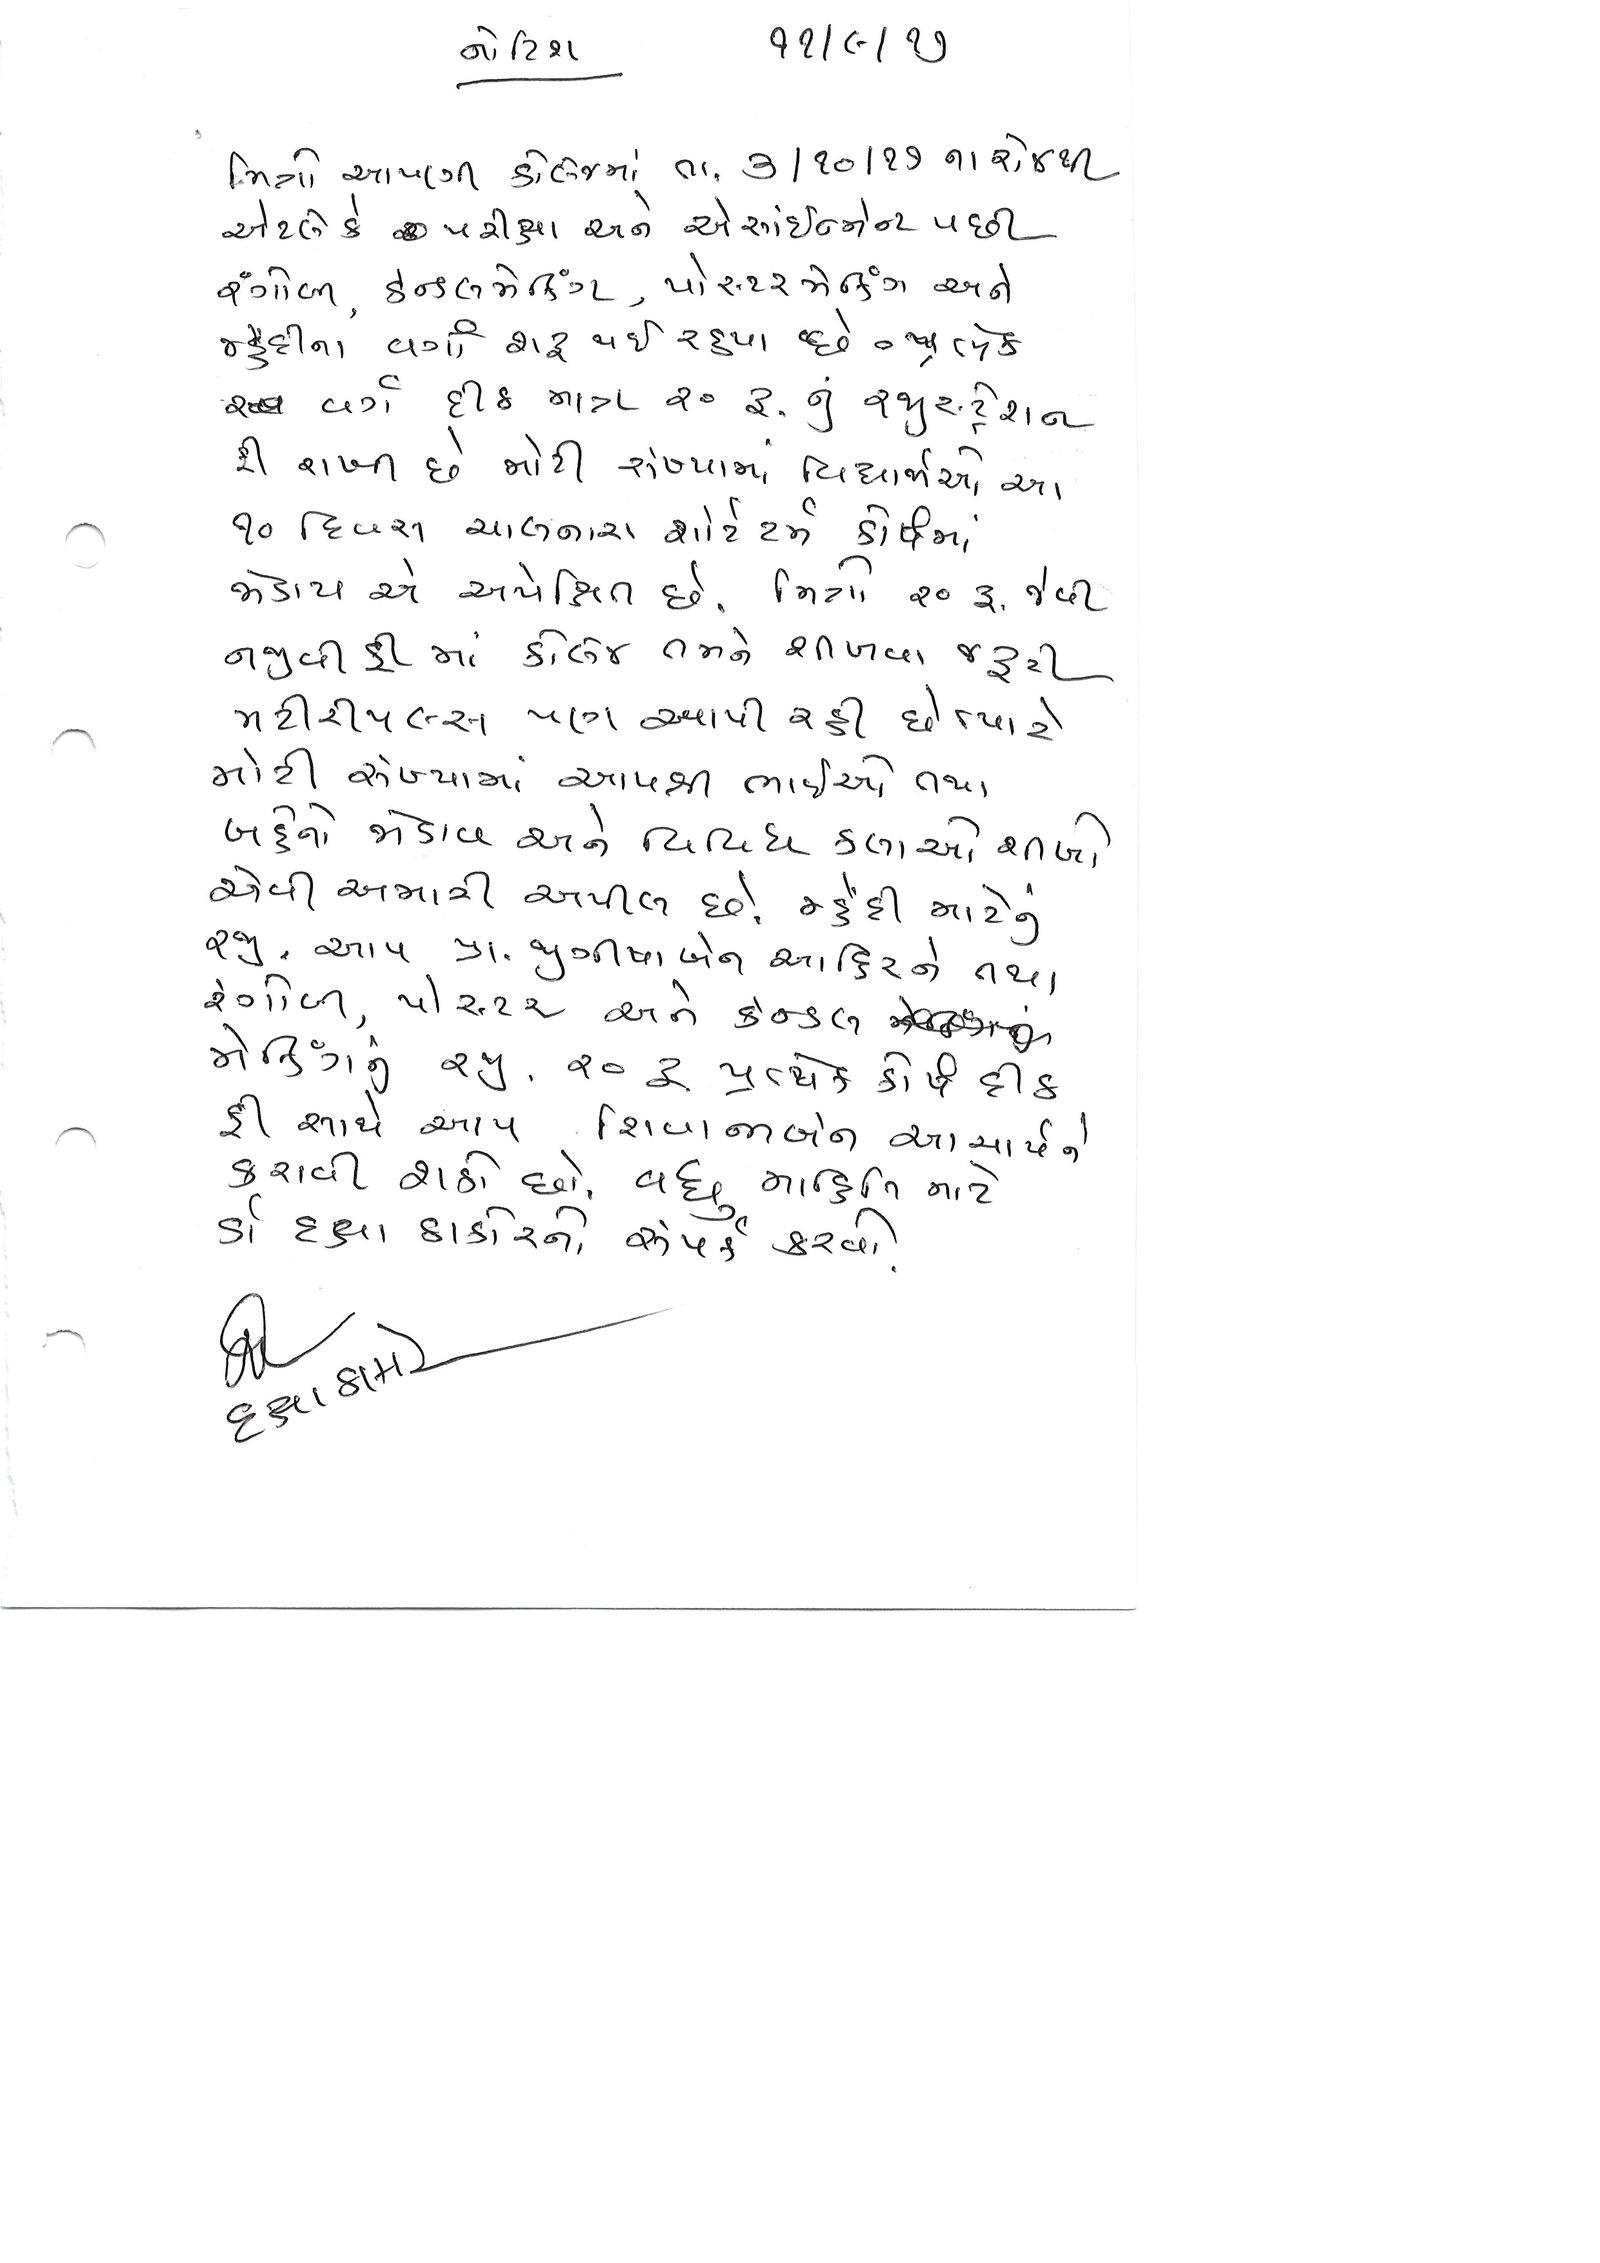 નોટિશ ૧૧/૯/૧૭
મિત્રો આપણી કૉલેજમાં તા. ૩/૧૦/૧૭ ના રોજથી
એટલે કે પરીક્ષા અને એસાંઈન્મેન્ટ પછી
રઁગોળી, કેન્ડલમેકિઁગ, પોસ્ટરમેકિઁગ અને
મ્હેંદીના વર્ગો શરૂ થઈ રહ્યા છે. પ્રત્યેક
વર્ગ દીઠ માત્ર ૨૦ રૂ. નું રજીસ્ટ્રેશન
ફી રાખી છે મોટી સંખ્યામાં વિદ્યાર્થીઓ આ
૧૦ દિવસ ચાલનારા શોર્ટ ટર્મ કોર્ષમાં
જોડાય એ અપેક્ષિત છે. મિત્રો ૨૦ રૂ. જેવી
નજીવી ફી માં કૉલેજ તમને શીખવા જરૂરી
મટીરીયલ્સ પણ આપી રહી છે ત્યારે
મોટી સંખ્યામાં આપશ્રી ભાઈઓ તથા
બહેનો જોડાવ અને વિવિધ કલાઓ શીખો
એવી અમારી અપીલ છે. મ્હેંદી માટેનું
રજી. આપ પ્રા. જીગીષાબેન આહિરને તથા
રંગોળી, પોસ્ટર અને કેન્ડલ
મેકિઁગનું રજી. ૨૦ રૂ પ્રત્યેક કોર્ષ દીઠ
ફી સાથે આપ શિવાનીબેન આચાર્યને
કરાવી શકો છો. વધુ માહિતિ માટે
ડૉ દક્ષા ઠાકોરનો સંપર્ક કરવો.
દક્ષા ઠાકોર